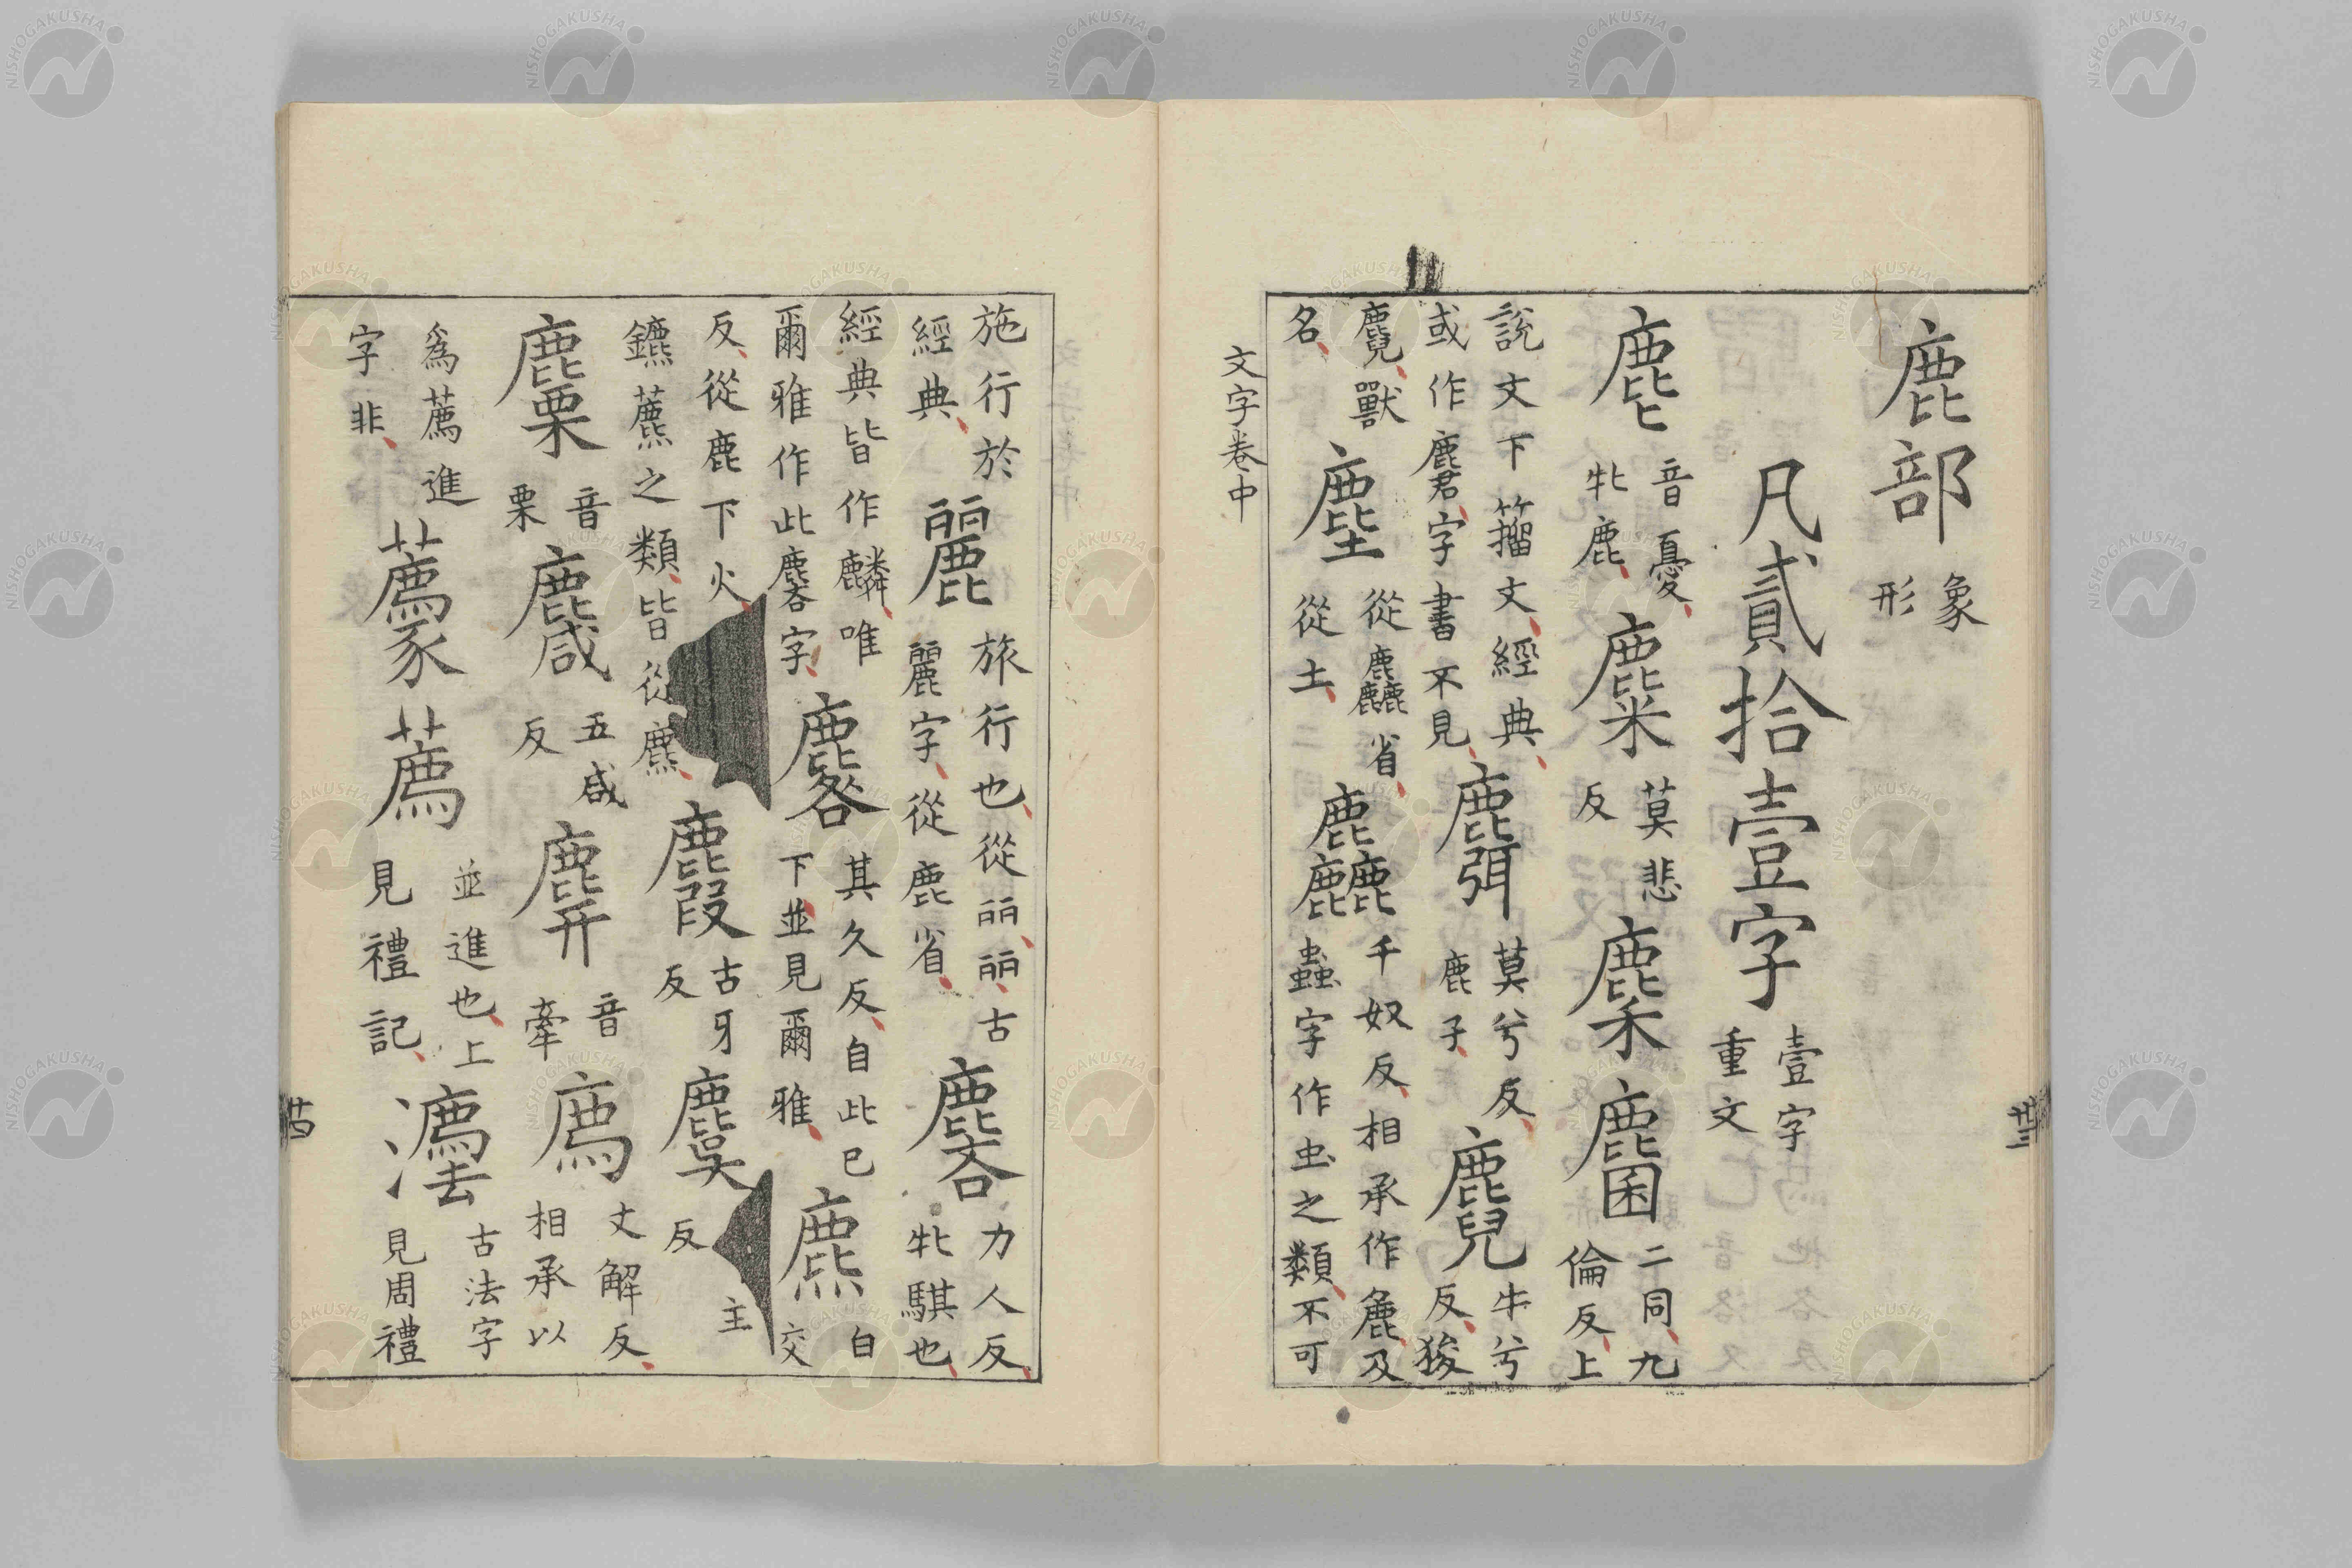 鹿部象形
凡貳拾壹字壹字重文
麀音憂牝鹿麋莫悲反䴢麕二同九倫反上
說文下籀文經典或作麏字書不見麛莫兮反鹿子麑牛兮反狻
麑獸名塵從麤省從土麤千奴反相承作麁及蟲字作虫之類不可
文字卷中
廿三
施行於經典麗旅行也從丽丽古麗字從鹿省麐力人反牝騏也
經典皆作麟唯爾雅作此麐字麔其久反自此已下並見爾雅麃白交
反從鹿下火鑣藨之類皆從麃麚古牙反麌主反
䴪音栗麙五咸反䴡音牽廌丈解反相承以
為薦進字非薦並進也上見禮記灋古法字見周禮
廿四
NISHOGAKUSHA